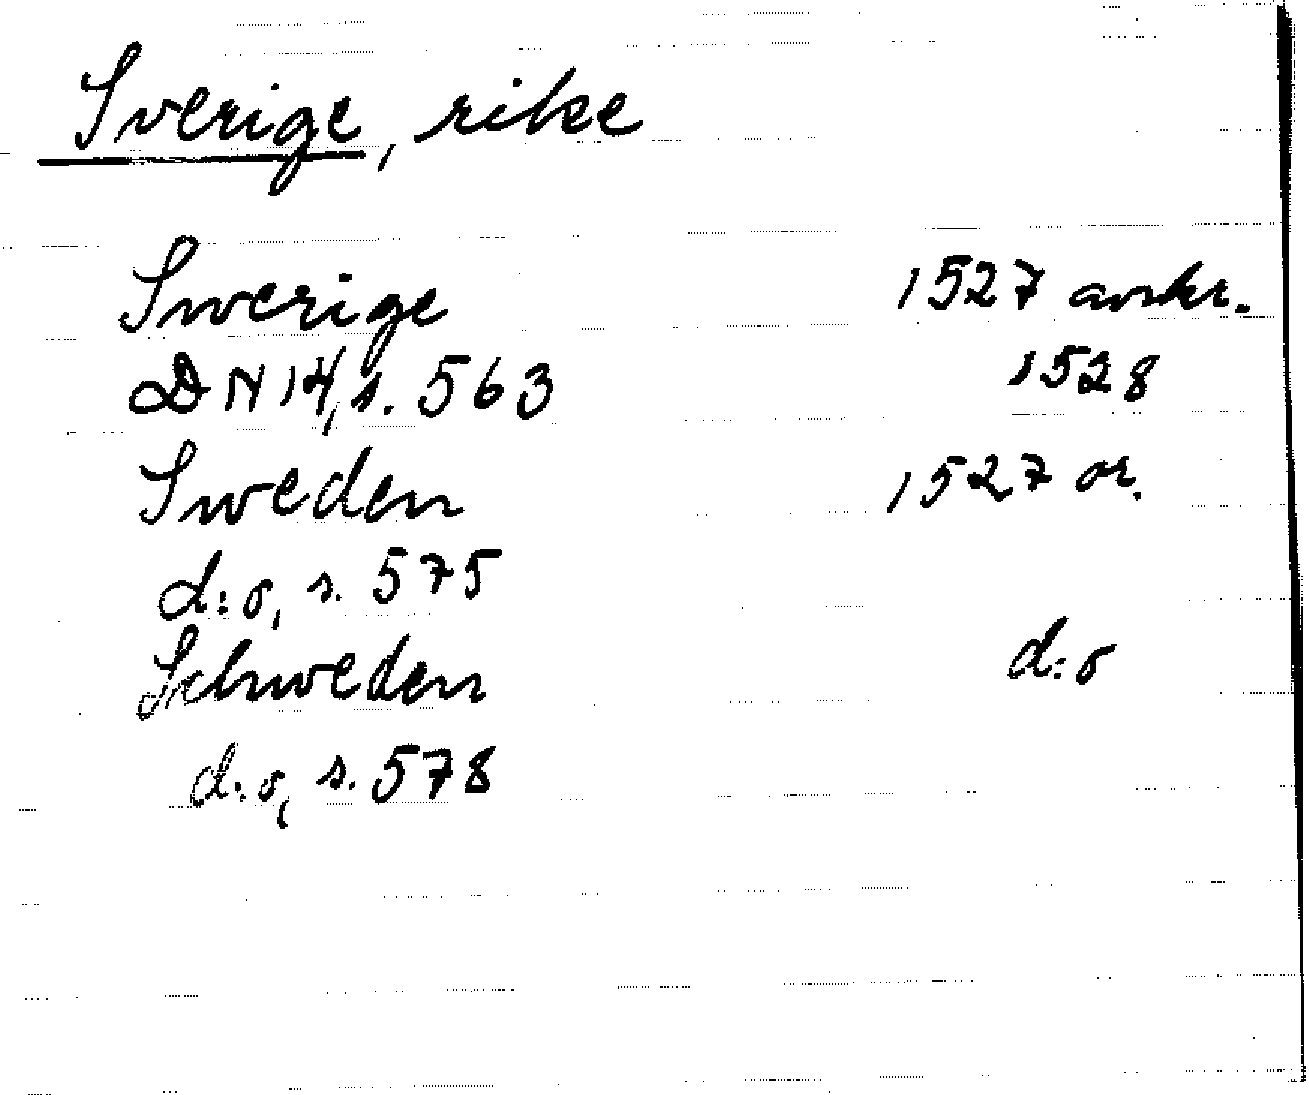 Sverige, rike
Swerige 1527 avskr.
DN 14, s. 563 1528
Sweden 1527 or.
d:o, s. 575
Schweden d:o
d:o, s. 578